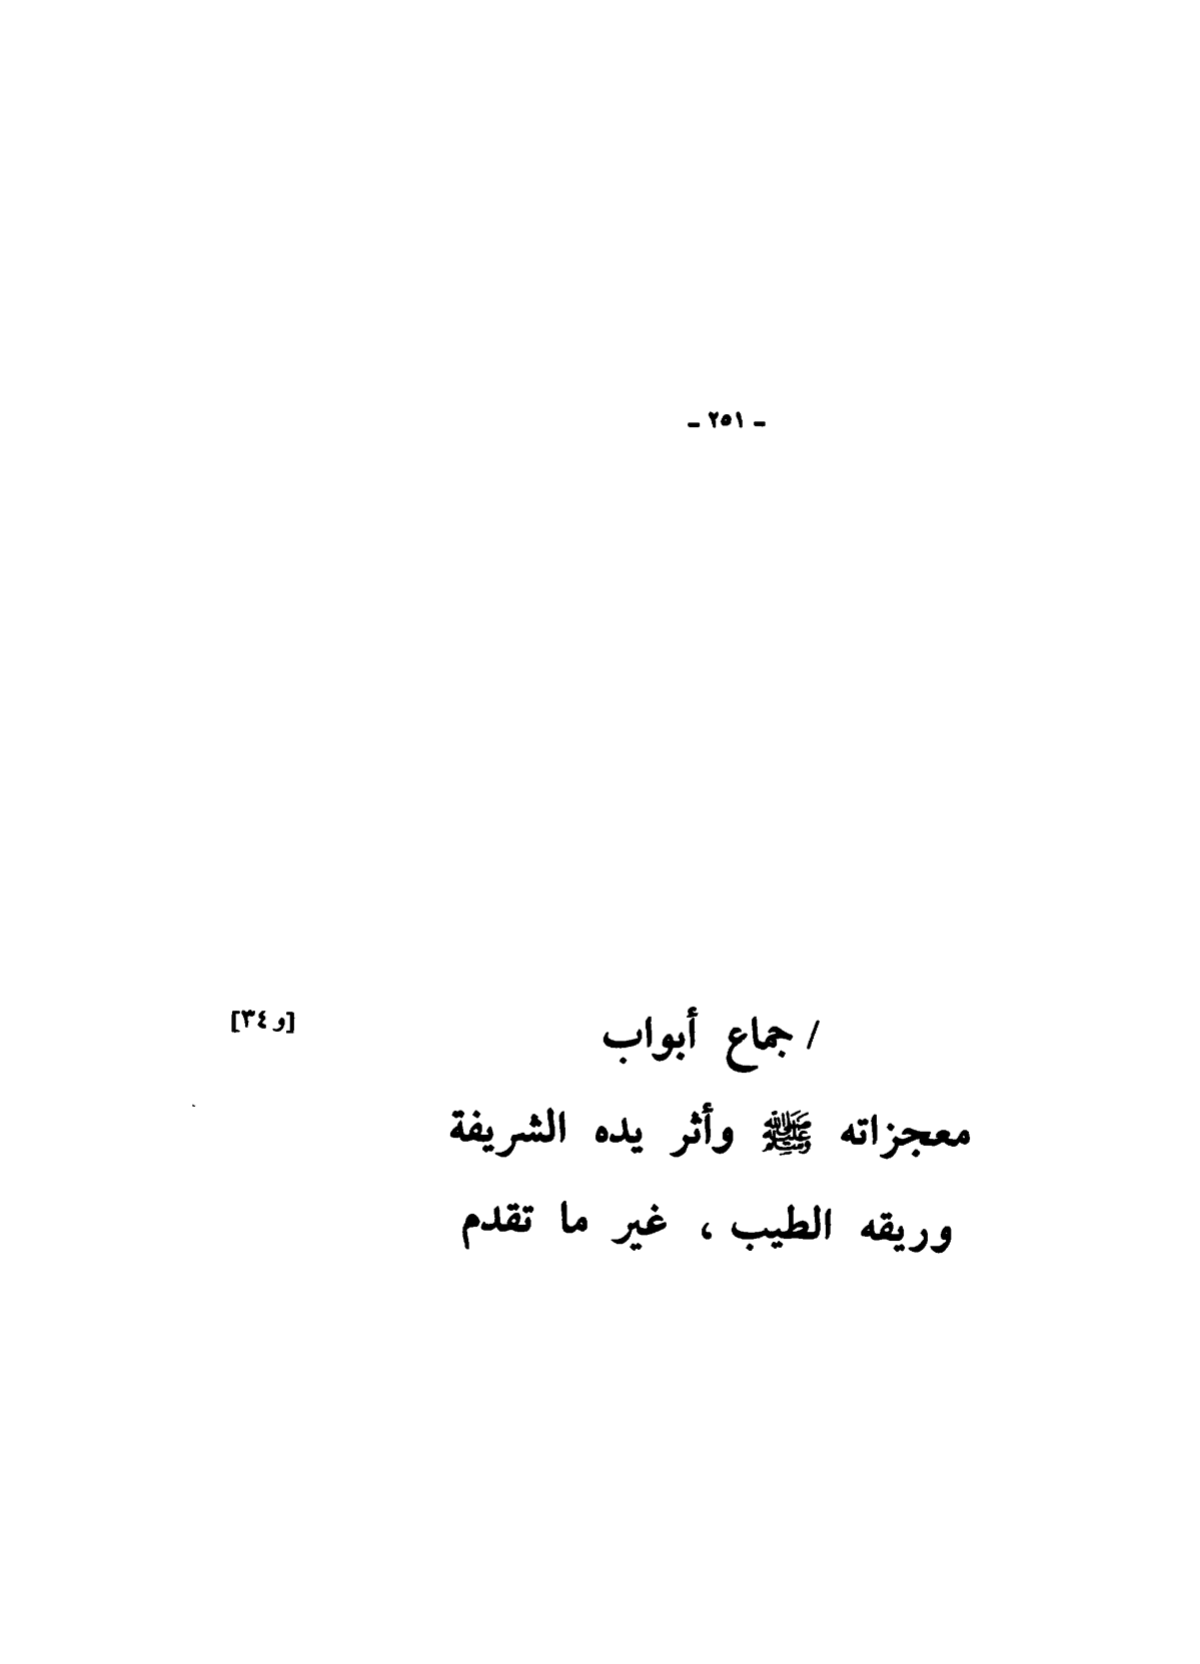 ـ ٢٥١ ـ
/ جماع أبواب
[و ٣٤]
معجزاته ﷺ وأثر يده الشريفة
وريقه الطيب ، غير ما تقدم